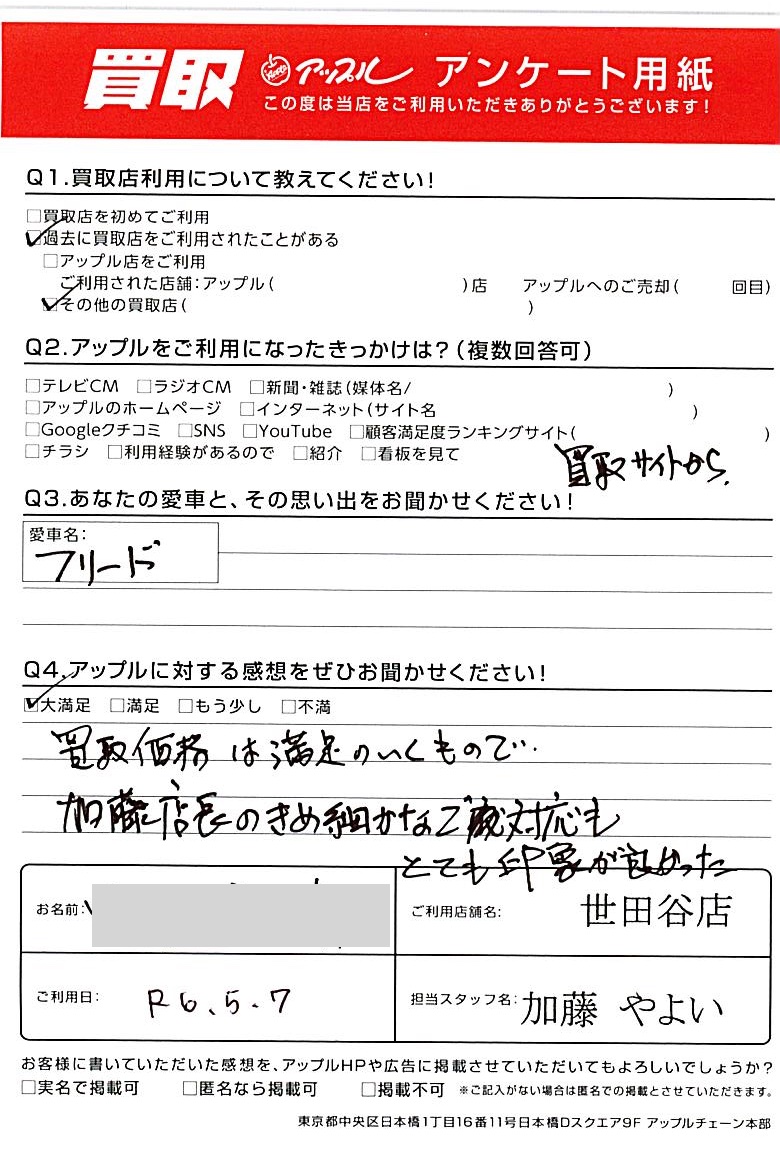 買取 アップル アンケート用紙
この度は当店をご利用いただきありがとうございます!
Q1.買取店利用について教えてください!
□買取店を初めてご利用
☑過去に買取店をご利用されたことがある
□アップル店をご利用
ご利用された店舗:アップル( )店 アップルへのご売却( 回目)
☑その他の買取店( )
Q2.アップルをご利用になったきっかけは?(複数回答可)
□テレビCM □ラジオCM □新聞・雑誌(媒体名/ )
□アップルのホームページ □インターネット(サイト名 )
□Googleクチコミ □SNS □YouTube □顧客満足度ランキングサイト( )
□チラシ □利用経験があるので □紹介 □看板を見て
買取サイトから.
Q3.あなたの愛車と、その思い出をお聞かせください!
愛車名:
フリード
Q4.アップルに対する感想をぜひお聞かせください!
☑大満足 □満足 □もう少し □不満
買取価格は満足のいくもので..
加藤店長のきめ細かなご対応も
とても印象が良かった
お名前:
ご利用店舗名: 世田谷店
ご利用日: R6.5.7
担当スタッフ名: 加藤 やよい
お客様に書いていただいた感想を、アップルHPや広告に掲載させていただいてもよろしいでしょうか?
□実名で掲載可 □匿名なら掲載可 □掲載不可 ※ご記入がない場合は匿名での掲載とさせていただきます。
東京都中央区日本橋1丁目16番11号日本橋Dスクエア9F アップルチェーン本部